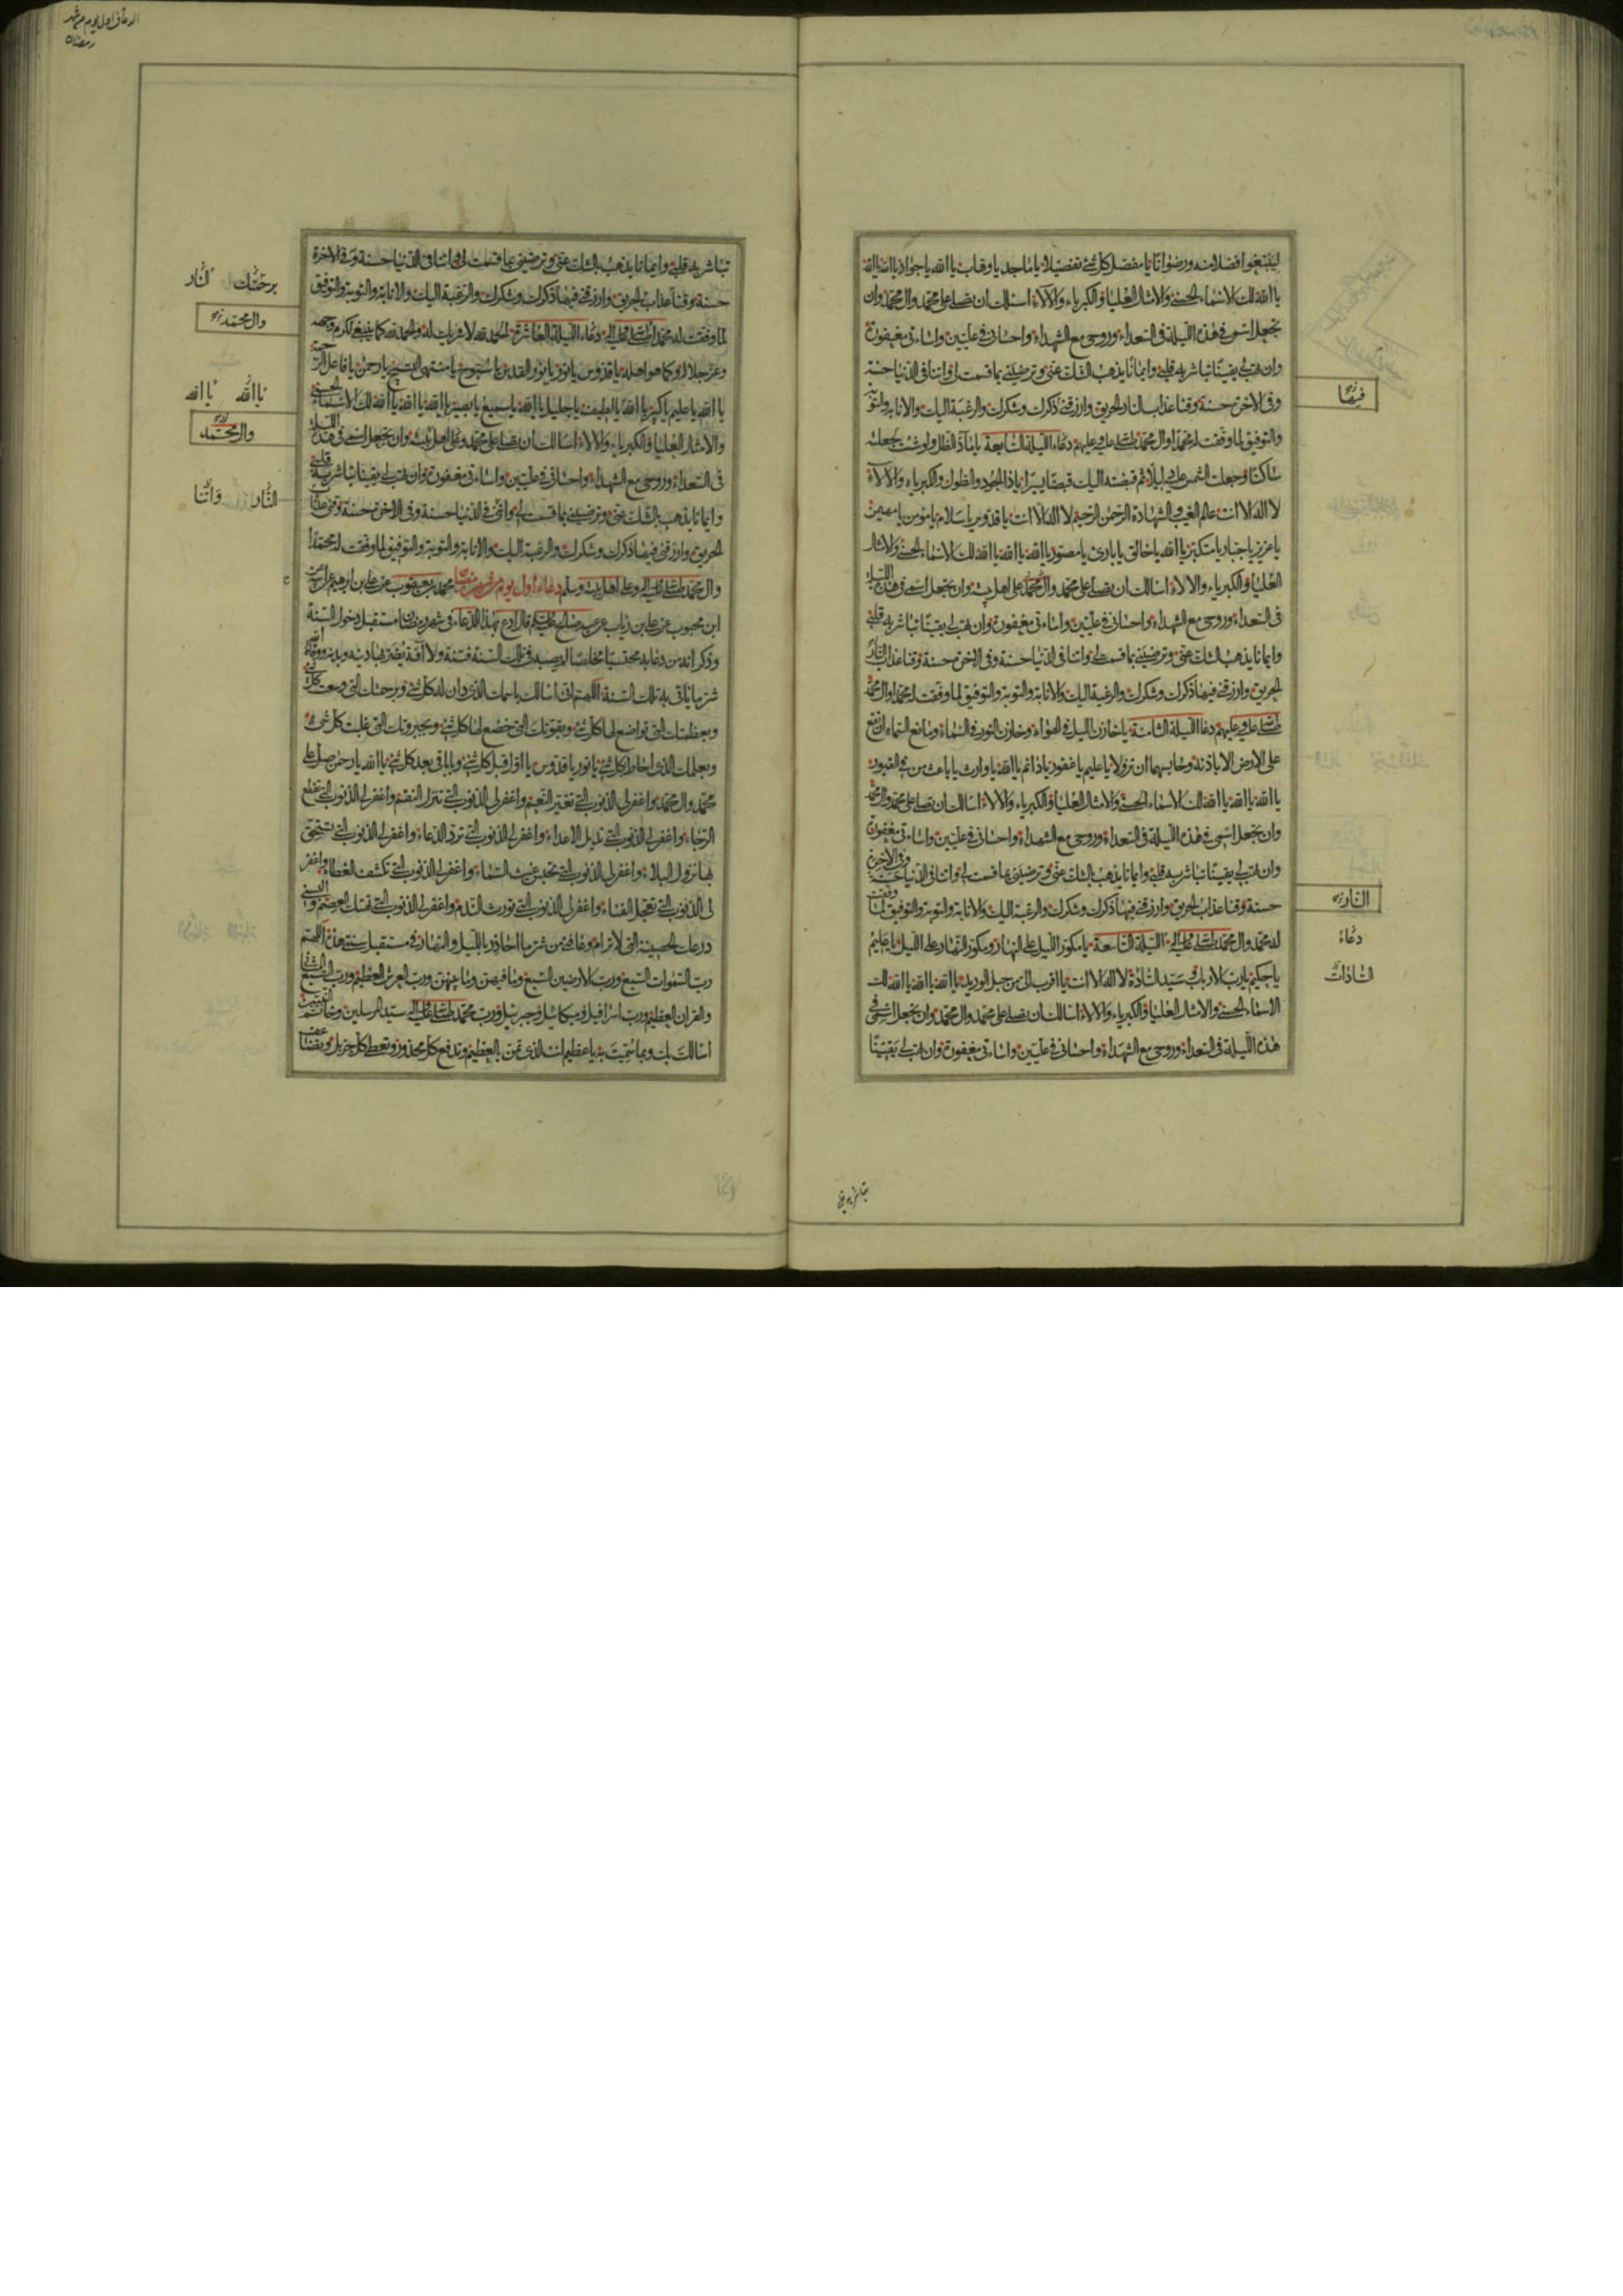 ليبتغوا فضلا منه ورضوانا يا مفصل كل شئ تفصيلا يا ماجد يا وهاب يا الله يا جواد يا الله يا الله
يا الله لك الاسماء الحسنى والامثال العليا والكبرياء والالاء اسالك ان تصلى على محمد وال محمد وان
تجعل اسمى فى هذه الليلة فى السعداء وروحى مع الشهداء واحسانى فى عليين واساءتى مغفورة
وان تهب لى يقينا تباشر به قلبى وايمانا يذهب الشك عنى وترضينى بما قسمت لى واتنا فى الدنيا حسنة
وفى الاخرة حسنة وقنا عذاب النار الحريق وارزقنى ذكرك وشكرك والرغبة اليك والانابة والتوبة
والتوفيق لما وفقت له محمدا وال محمد صلى الله عليه وعليهم دعاء الليلة السابعة يا ماد الظل ولو شئت لجعلته
ساكنا وجعلت الشمس عليه دليلا ثم قبضته اليك قبضا يسيرا يا ذا الجود والطول والكبرياء والالاء
لا اله الا انت عالم الغيب والشهادة الرحمن الرحيم لا اله الا انت يا قدوس يا سلام يا مؤمن يا مهيمن
يا عزيز يا جبار يا متكبر يا الله يا خالق يا بارئ يا مصور يا الله يا الله يا الله لك الاسماء الحسنى والامثال
العليا والكبرياء والالاء اسالك ان تصلى على محمد وال محمد وعلى اهل بيته وان تجعل اسمى فى هذه الليلة
فى السعداء وروحى مع الشهداء واحسانى فى عليين واساءتى مغفورة وان تهب لى يقينا تباشر به قلبى
وايمانا يذهب الشك عنى وترضينى بما قسمت لى واتنا فى الدنيا حسنة وفى الاخرة حسنة وقنا عذاب النار
الحريق وارزقنى فيها ذكرك وشكرك والرغبة اليك والانابة والتوبة والتوفيق لما وفقت له محمدا وال محمد
صلى الله عليه وعليهم دعا الليلة الثامنة يا خازن الليل فى الهواء وخازن النور فى السماء ومانع السماء ان تقع
على الارض الا باذنه وحابسهما ان تزولا يا عليم يا غفور يا دائم يا الله يا وارث يا باعث من فى القبور
يا الله يا الله يا الله لك الاسماء الحسنى والامثال العليا والكبرياء والالاء اسالك ان تصلى على محمد وال محمد
وان تجعل اسمى فى هذه الليلة فى السعداء وروحى مع الشهداء واحسانى فى عليين واساءتى مغفورة
وان تهب لى يقينا تباشر به قلبى وايمانا يذهب الشك عنى وترضينى بما قسمت لى واتنا فى الدنيا حسنة وفى الاخرة
حسنة وقنا عذاب الحريق وارزقنى فيها ذكرك وشكرك والرغبة اليك والانابة والتوبة والتوفيق لما وفقت
له محمد وال محمد صلى الله عليه واله الليلة التاسعة يا مكور الليل على النهار ومكور النهار على الليل يا عليم
يا حكيم يا رب الارباب وسيد السادة لا اله الا انت يا اقرب الى من حبل الوريد يا الله يا الله يا الله لك
الاسماء الحسنى والامثال العليا والكبرياء والالاء اسالك ان تصلى على محمد وال محمد وان تجعل اسمى فى
هذه الليلة فى السعداء وروحى مع الشهداء واحسانى فى عليين واساءتى مغفورة وان تهب لى يقينا
فيها
النار
دعاء
السادات
تباشر به قلبى
الدعاء فى اول يوم من شهر
رمضان
تباشر به قلبى وايمانا يذهب بالشك عنى وترضينى بما قسمت لى واتنا فى الدنيا حسنة وفى الاخرة
حسنة وقنا عذاب الحريق وارزقنى فيها ذكرك وشكرك والرغبة اليك والانابة والتوبة والتوفيق
لما وفقت له محمدا صلى الله عليه واله دعاء الليلة العاشرة الحمد لله لا شريك له والحمد لله كما ينبغى لكرم وجهه
وعز جلاله وكما هو اهله يا قدوس يا نور يا نور القدس يا سبوح يا منتهى التسبيح يا رحمن يا فاعل الرحمة
يا الله يا عليم يا كبير يا الله يا لطيف يا جليل يا الله يا سميع يا بصير يا الله يا الله يا الله لك الاسماء الحسنى
والامثال العليا والكبرياء والالاء اسالك ان تصلى على محمد وعلى اهل بيته وان تجعل اسمى فى هذه الليلة
فى السعداء وروحى مع الشهداء واحسانى فى عليين واساءتى مغفورة وان تهب لى يقينا تباشر به قلبى
وايمانا يذهب بالشك عنى وترضينى بما قسمت لى واتنى فى الدنيا حسنة وفى الاخرة حسنة وقنى عذاب
الحريق وارزقنى فيها ذكرك وشكرك والرغبة اليك والانابة والتوبة والتوفيق لما وفقت له محمدا
وال محمد صلى الله عليه وعلى اهل بيته وسلم دعاء اول يوم من شهر رمضان محمد بن يعقوب عن على بن ابرهيم عن ابيه عن
ابن محبوب عن على بن رئاب عن عبد صالح عليه السلام قال ادع بهذا الدعاء فى شهر رمضان مستقبل دخول السنة
وذكر انه من دعا به محتسبا مخلصا لم تصبه فى تلك السنة فتنة ولا افة يضر بها دينه وبدنه ووقاه الله
شر ما ياتى به تلك السنة اللهم انى اسالك باسمك الذى دان له كل شئ وبرحمتك التى وسعت كل شئ
وبعظمتك التى تواضع لها كل شئ وبقوتك التى خضع لها كل شئ وبجبروتك التى غلبت كل شئ
وبعلمك الذى احاط بكل شئ يا نور يا قدوس يا اول قبل كل شئ ويا باقى بعد كل شئ يا الله يا رحمن صل على
محمد وال محمد واغفر لى الذنوب التى تغير النعم واغفر لى الذنوب التى تنزل النقم واغفر لى الذنوب التى تقطع
الرجاء واغفر لى الذنوب التى تديل الاعداء واغفر لى الذنوب التى ترد الدعاء واغفر لى الذنوب التى يستحق
بها نزول البلاء واغفر لى الذنوب التى تحبس غيث السماء واغفر لى الذنوب التى تكشف الغطاء واغفر
لى الذنوب التى تعجل الفناء واغفر لى الذنوب التى تورث الندم واغفر لى الذنوب التى تهتك العصم والبسنى
درعك الحصينة التى لا ترام وعافنى من شر ما احاذر بالليل والنهار فى مستقبل سنتى هذه اللهم
رب السموات السبع ورب الارضين السبع وما فيهن وما بينهن ورب العرش العظيم ورب السبع المثانى
والقران العظيم ورب اسرافيل وميكائيل وجبرئيل ورب محمد صلى الله عليه واله سيد المرسلين وخاتم النبيين
اسالك بك وبما سميت به يا عظيم انت الذى تمن بالعظيم وتدفع كل محذور وتعطى كل جزيل وتضاعف
برحمتك النار
وال محمد
يا الله يا الله
وال محمد
النار واتنا